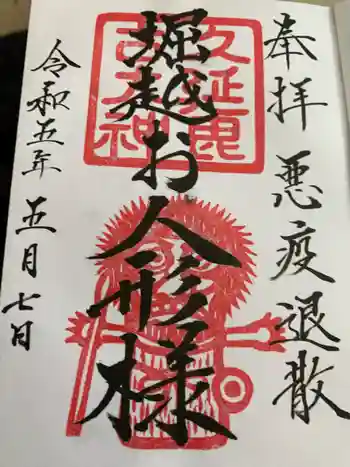 奉拝 悪疫退散
堀越お人形様
令和五年五月七日